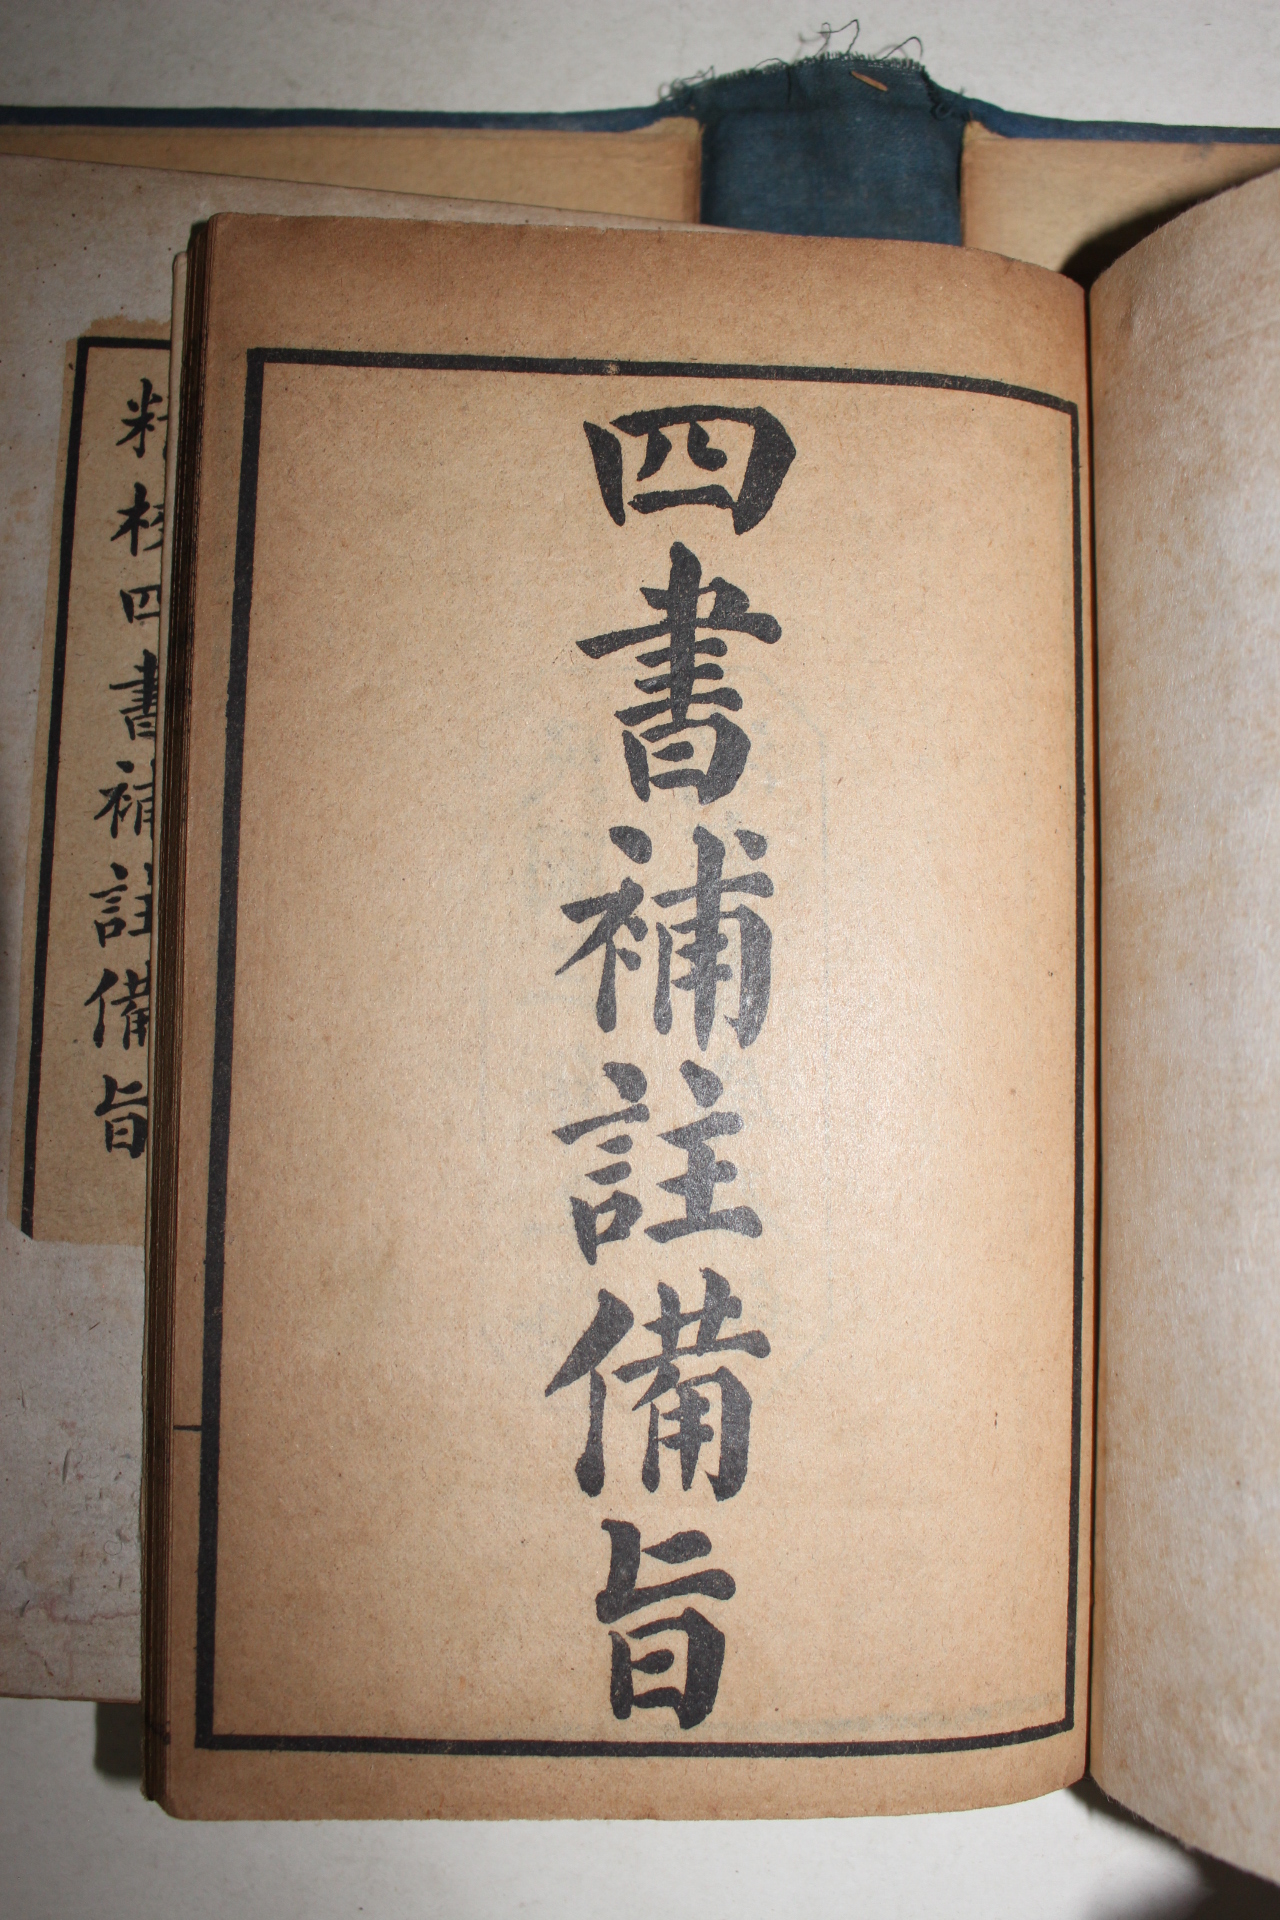 四書補註備旨
精校四書補註備旨